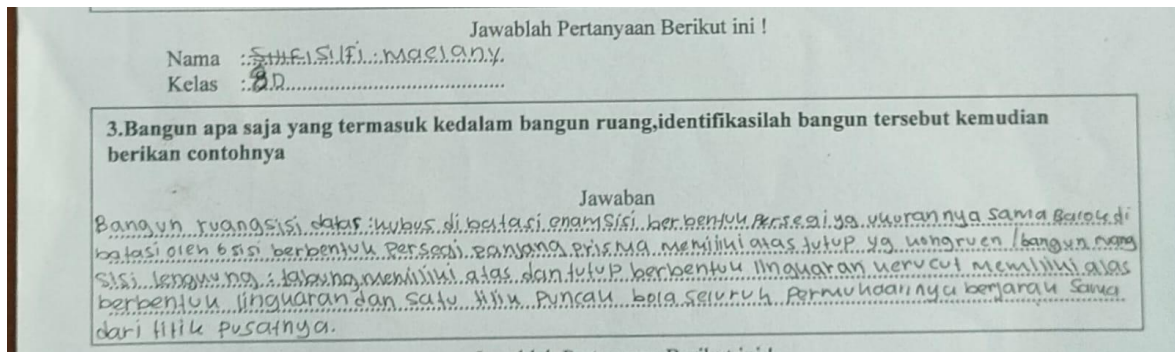 Jawablah Pertanyaan Berikut ini !
Nama : Siti Silfi maelany
Kelas : 8D
3.Bangun apa saja yang termasuk kedalam bangun ruang,identifikasilah bangun tersebut kemudian
berikan contohnya
Jawaban
Bangun ruang sisi datar : kubus di batasi enam sisi berbentuk persegi yg ukurannya sama Balok di
batasi oleh 6 sisi berbentuk persegi panjang prisma memiliki atas tutup yg kongruen / bangun ruang
sisi lengkung : tabung memiliki atas dan tutup berbentuk lingkaran kerucut memiliki alas
berbentuk lingkaran dan satu titik puncak bola seluruh permukaannya berjarak sama
dari titik pusatnya.